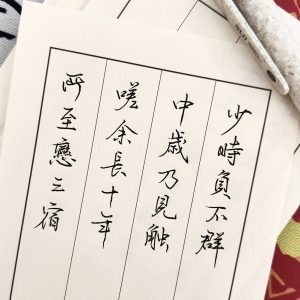 少時負不群
中歲乃見触
嗟余長十年
所至戀三宿